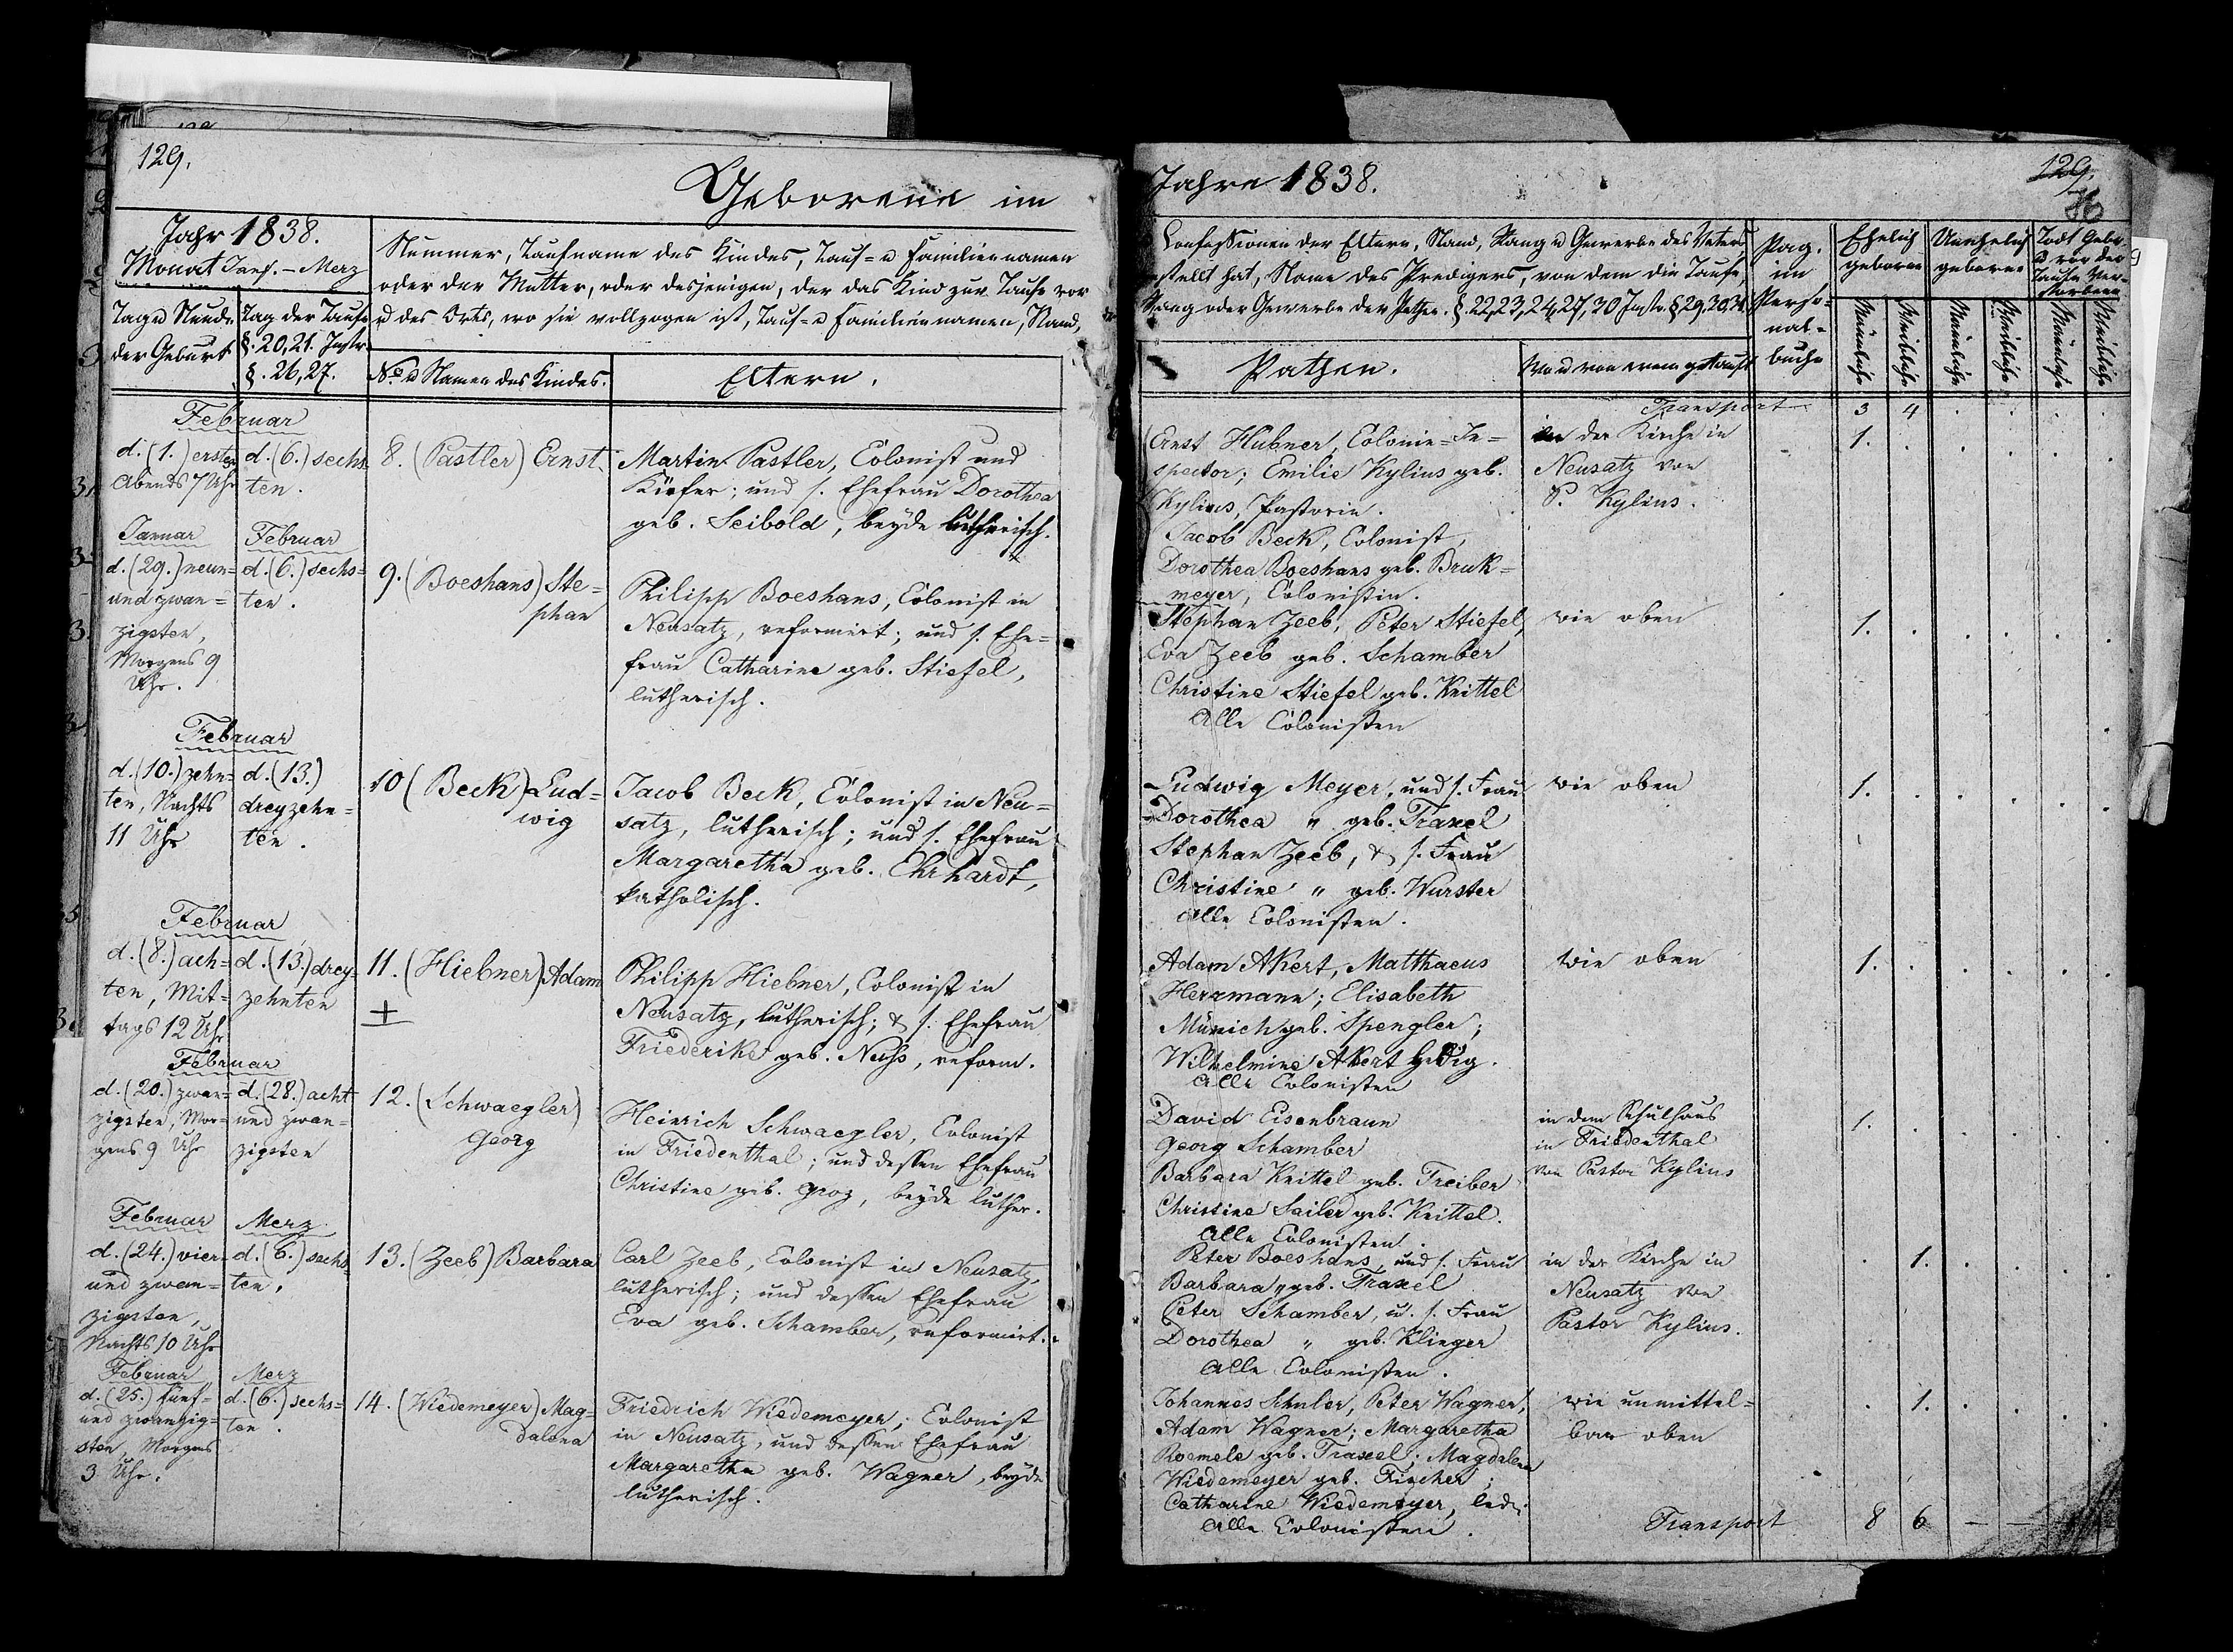 129.
Geborene im
Jahr 1838.
Monat Janf. – Merz
Nummer, Taufname des Kindes, Tauf- u Familiennamen
oder der Mutter, oder desjenigen, der das Kind zur Taufe vor
u des Orts, wo sie vollzogen ist, Tauf- u Familiennamen, Stand,
Tag u Stunde
der Geburt
Tag der Taufe
§. 20, 21. Instr.
§. 26, 27.
No. u Namen des Kindes.
Eltern.
Februar
d. (1.) ersten
Abends 7 Uhr
d. (6.) sechs-
ten.
8. (Pastler) Ernst.
Martin Pastler, Colonist und
Küfer; und s. Ehefrau Dorothea
geb. Seibold, beyde lutherisch.
Januar
d. (29.) neun-
und zwan-
zigsten,
Morgens 9
Uhr.
Februar
d. (6.) sechs-
ten.
9. (Boeshans) Ste-
phan
Philipp Boeshans, Colonist in
Neusatz, reformirt; und s. Ehe-
frau Catharine geb. Stiefel,
lutherisch.
Februar
d. (10.) zehn-
ten, Nachts
11 Uhr
d. (13.)
dreyzehn-
ten.
10 (Beck) Lud-
wig
Jacob Beck, Colonist in Neu-
satz, lutherisch; und s. Ehefrau
Margaretha geb. Ehrhardt,
katholisch.
Februar
d. (8.) ach-
ten, Mit-
tags 12 Uhr
d. (13.) drey-
zehnten
11. (Hiebner) Adam
+
Philipp Hiebner, Colonist in
Neusatz, lutherisch; & s. Ehefrau
Friederike geb. Nuss, reform.
Februar
d. (20.) zwan-
zigsten, Mor-
gens 9 Uhr
d. (28.) acht
und zwan-
zigsten
12. (Schwaegler)
Georg
Heinrich Schwaegler, Colonist
in Friedenthal; und dessen Ehefrau
Christine geb. Groz, beyde luther.
Februar
d. (24.) vier-
und zwan-
zigsten,
Nachts 10 Uhr
Merz
d. (6.) sechs-
ten.
13. (Zeeb) Barbara
Carl Zeeb, Colonist in Neusatz,
lutherisch; und dessen Ehefrau
Eva geb. Schamber, reformirt.
Februar
d. (25.) fünf-
und zwanzig-
sten, Morgens
3 Uhr.
Merz
d. (6.) sechs-
ten.
14. (Wiedemeyer) Mag-
dalena
Friedrich Wiedemeyer, Colonist
in Neusatz, und dessen Ehefrau
Margaretha geb. Wagner, beyde
lutherisch.
Jahre 1838.
129.
Confessionen der Eltern, Stand, Rang u Gewerbe des Vaters,
stellt hat, Name des Predigers, von dem die Taufe,
Rang oder Gewerbe der Pathen. §. 22, 23, 24, 27, 30 Instr. § 29, 30, 31.
Pag.
im
Perso-
nal-
buche
Ehelich
geborne
Unehelich
geborne
Todt Gebr.
u vor der
Taufe Ver-
storbene
Männliche
Weibliche
Männliche
Weibliche
Männliche
Weibliche
Pathen.
Wo u von wem getauft
Transport 3 4
Ernst Hubner, Colonie-In-
spector; Emilie Kylius geb.
Kylius, Pastorin.
Jacob Beck, Colonist,
Dorothea Boeshans geb. Bruk-
meyer, Colonistin.
in der Kirche in
Neusatz von
P. Kylius.
1.
Stephan Zeeb, Peter Stiefel,
Eva Zeeb geb. Schamber
Christine Stiefel geb. Knittel
Alle Colonisten
wie oben
1.
Ludwig Meyer, und s. Frau
Dorothea " geb. Traxel
Stephan Zeeb, & s. Frau
Christine " geb. Wurster
Alle Colonisten.
wie oben
1.
Adam Akert, Matthaeus
Herrmann; Elisabeth
Münich geb. Spengler;
Wilhelmine Akert ledig.
Alle Colonisten
wie oben
1.
David Eisenbraun
Georg Schamber
Barbara Knittel geb. Treiber
Christine Sailer geb. Knittel.
Alle Colonisten.
in dem Schulhaus
in Friedenthal
von Pastor Kylius
1.
Peter Boeshans, und s. Frau
Barbara " geb. Traxel
Peter Schamber, u. s. Frau
Dorothea " geb. Klinger
Alle Colonisten.
in der Kirche in
Neusatz von
Pastor Kylius.
1.
Johannes Schuler, Peter Wagner,
Adam Wagner; Margaretha
Roemele geb. Traxel; Magdalena
Wiedemeyer geb. Fischer;
Catharine Wiedemeyer, led.
Alle Colonisten.
wie unmittel-
bar oben
1.
Transport 8 6 – –